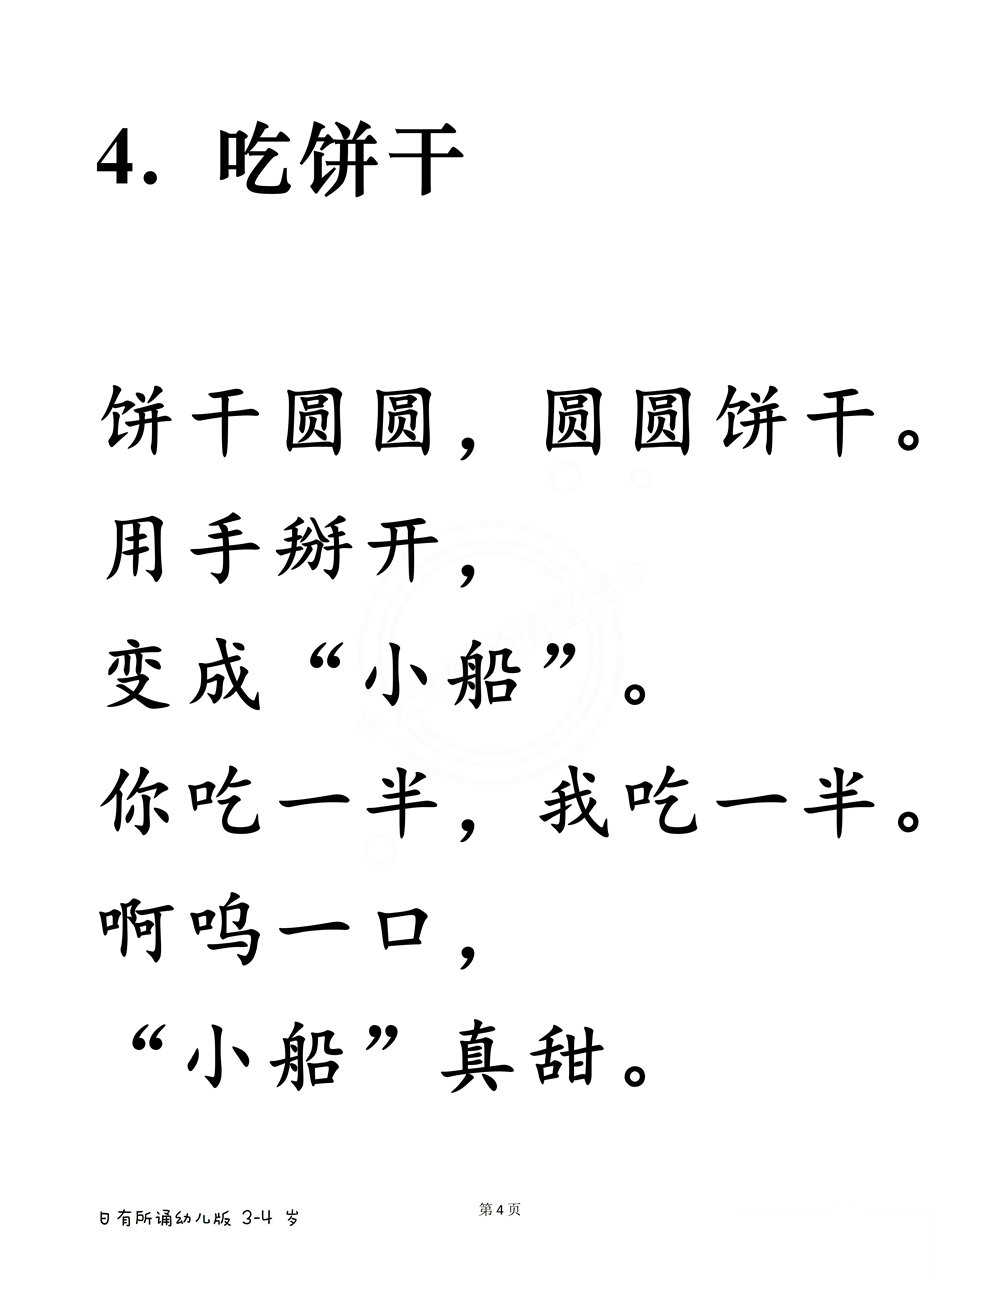 4. 吃饼干
饼干圆圆，圆圆饼干。
用手掰开，
变成“小船”。
你吃一半，我吃一半。
啊呜一口，
“小船”真甜。
日有所诵幼儿版 3-4 岁
第 4 页